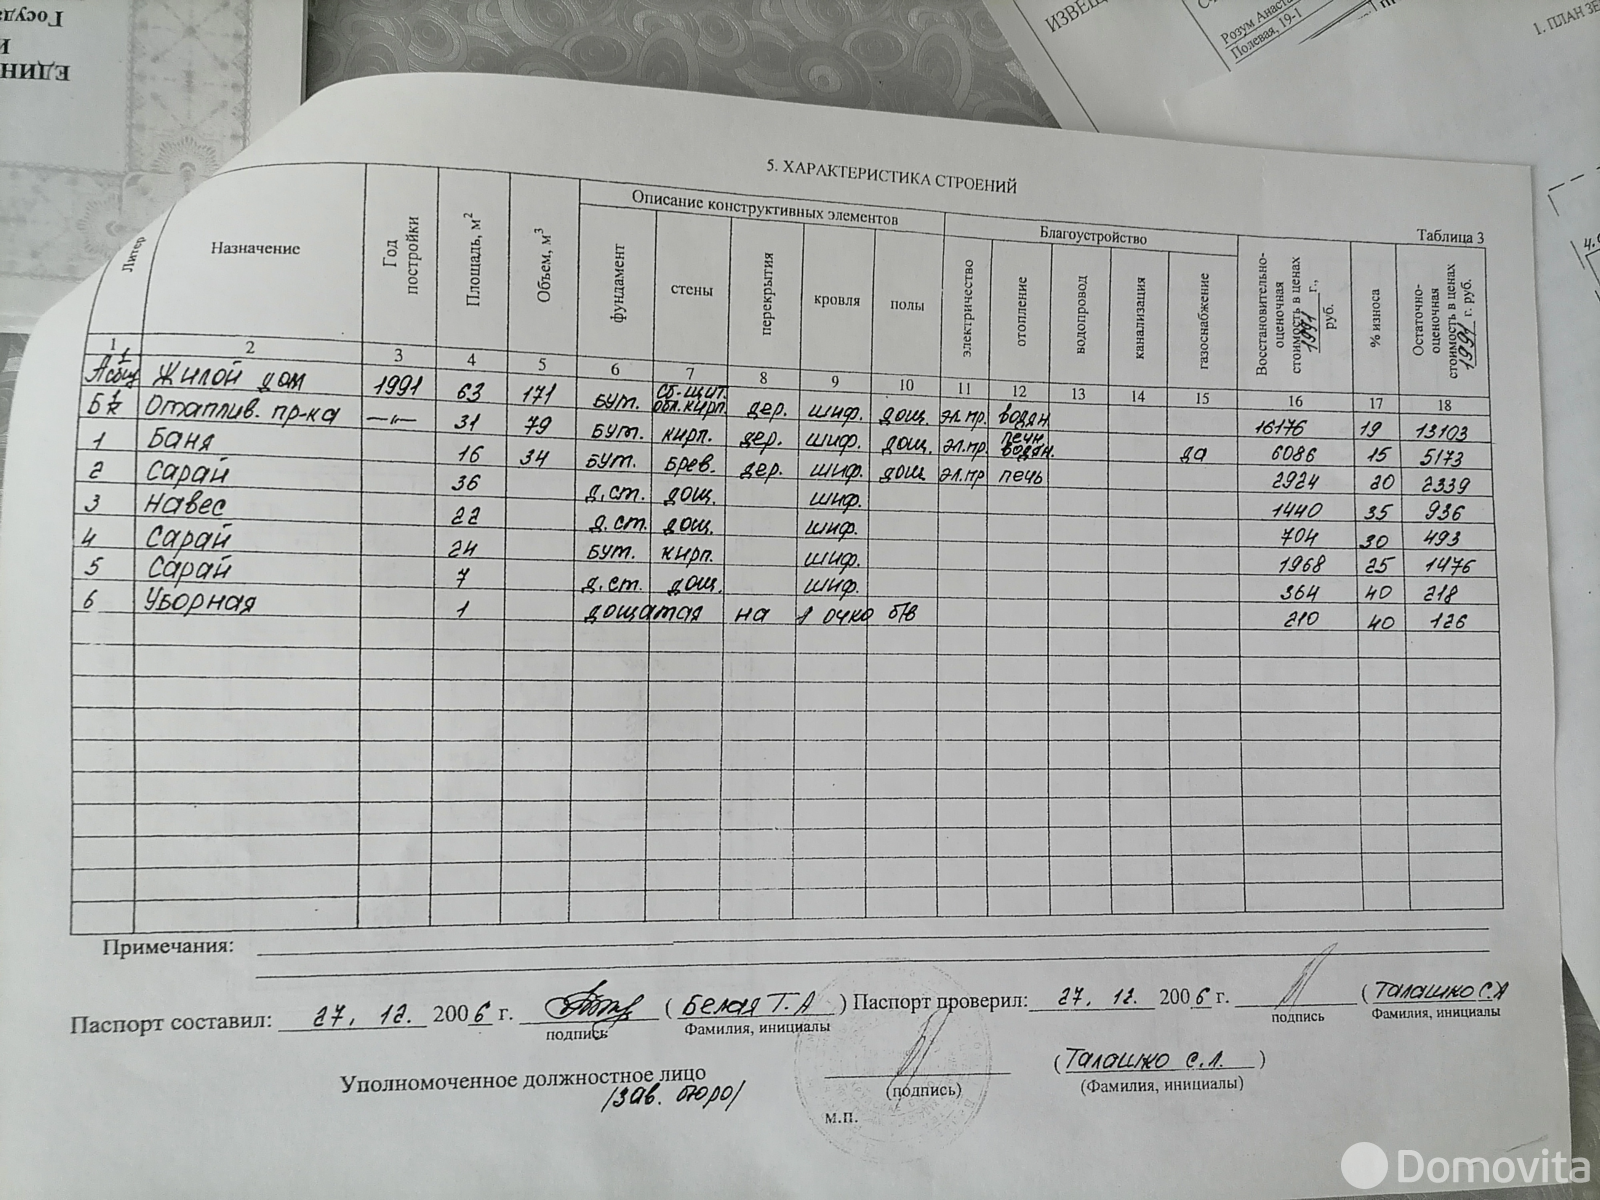 ЕДИН
И
Госуда
ИЗВЕЩ
Розум Анаста
Полевая, 19-1
1. ПЛАН ЗЕ
5. ХАРАКТЕРИСТИКА СТРОЕНИЙ
Таблица 3
Литер Назначение Год постройки Площадь, м² Объем, м³ Описание конструктивных элементов Благоустройство Восстановительно-оценочная стоимость в ценах 1991 г., руб. % износа Остаточно-оценочная стоимость в ценах 1991 г. руб.
фундамент стены перекрытия кровля полы электричество отопление водопровод канализация газоснабжение
1 2 3 4 5 6 7 8 9 10 11 12 13 14 15 16 17 18
А 1 сбщ Жилой дом 1991 63 171 бут. сб-щит. обл.кирп. дер. шиф. дощ. эл.пр. водян. 16176 19 13103
Б 1 к Отаплив. пр-ка —"— 31 79 бут. кирп. дер. шиф. дощ. эл.пр печн. водян. да 6086 15 5173
1 Баня 16 34 бут. брев. дер. шиф. дощ эл.пр печь 2924 20 2339
2 Сарай 36 д.ст. дощ. шиф. 1440 35 936
3 Навес 22 д.ст. дощ. шиф. 704 30 493
4 Сарай 24 бут. кирп. шиф. 1968 25 1476
5 Сарай 7 д.ст. дощ. шиф. 364 40 218
6 Уборная 1 дощатая на 1 очко б/в 210 40 126
Примечания:
Паспорт составил: 27. 12. 2006 г. (Белая Т.А) Паспорт проверил: 27. 12. 2006 г. (Талашко С.Л
подпись Фамилия, инициалы подпись Фамилия, инициалы
Уполномоченное должностное лицо (Талашко С.Л.)
/зав. бюро/ (подпись) (Фамилия, инициалы)
м.п.
Domovita